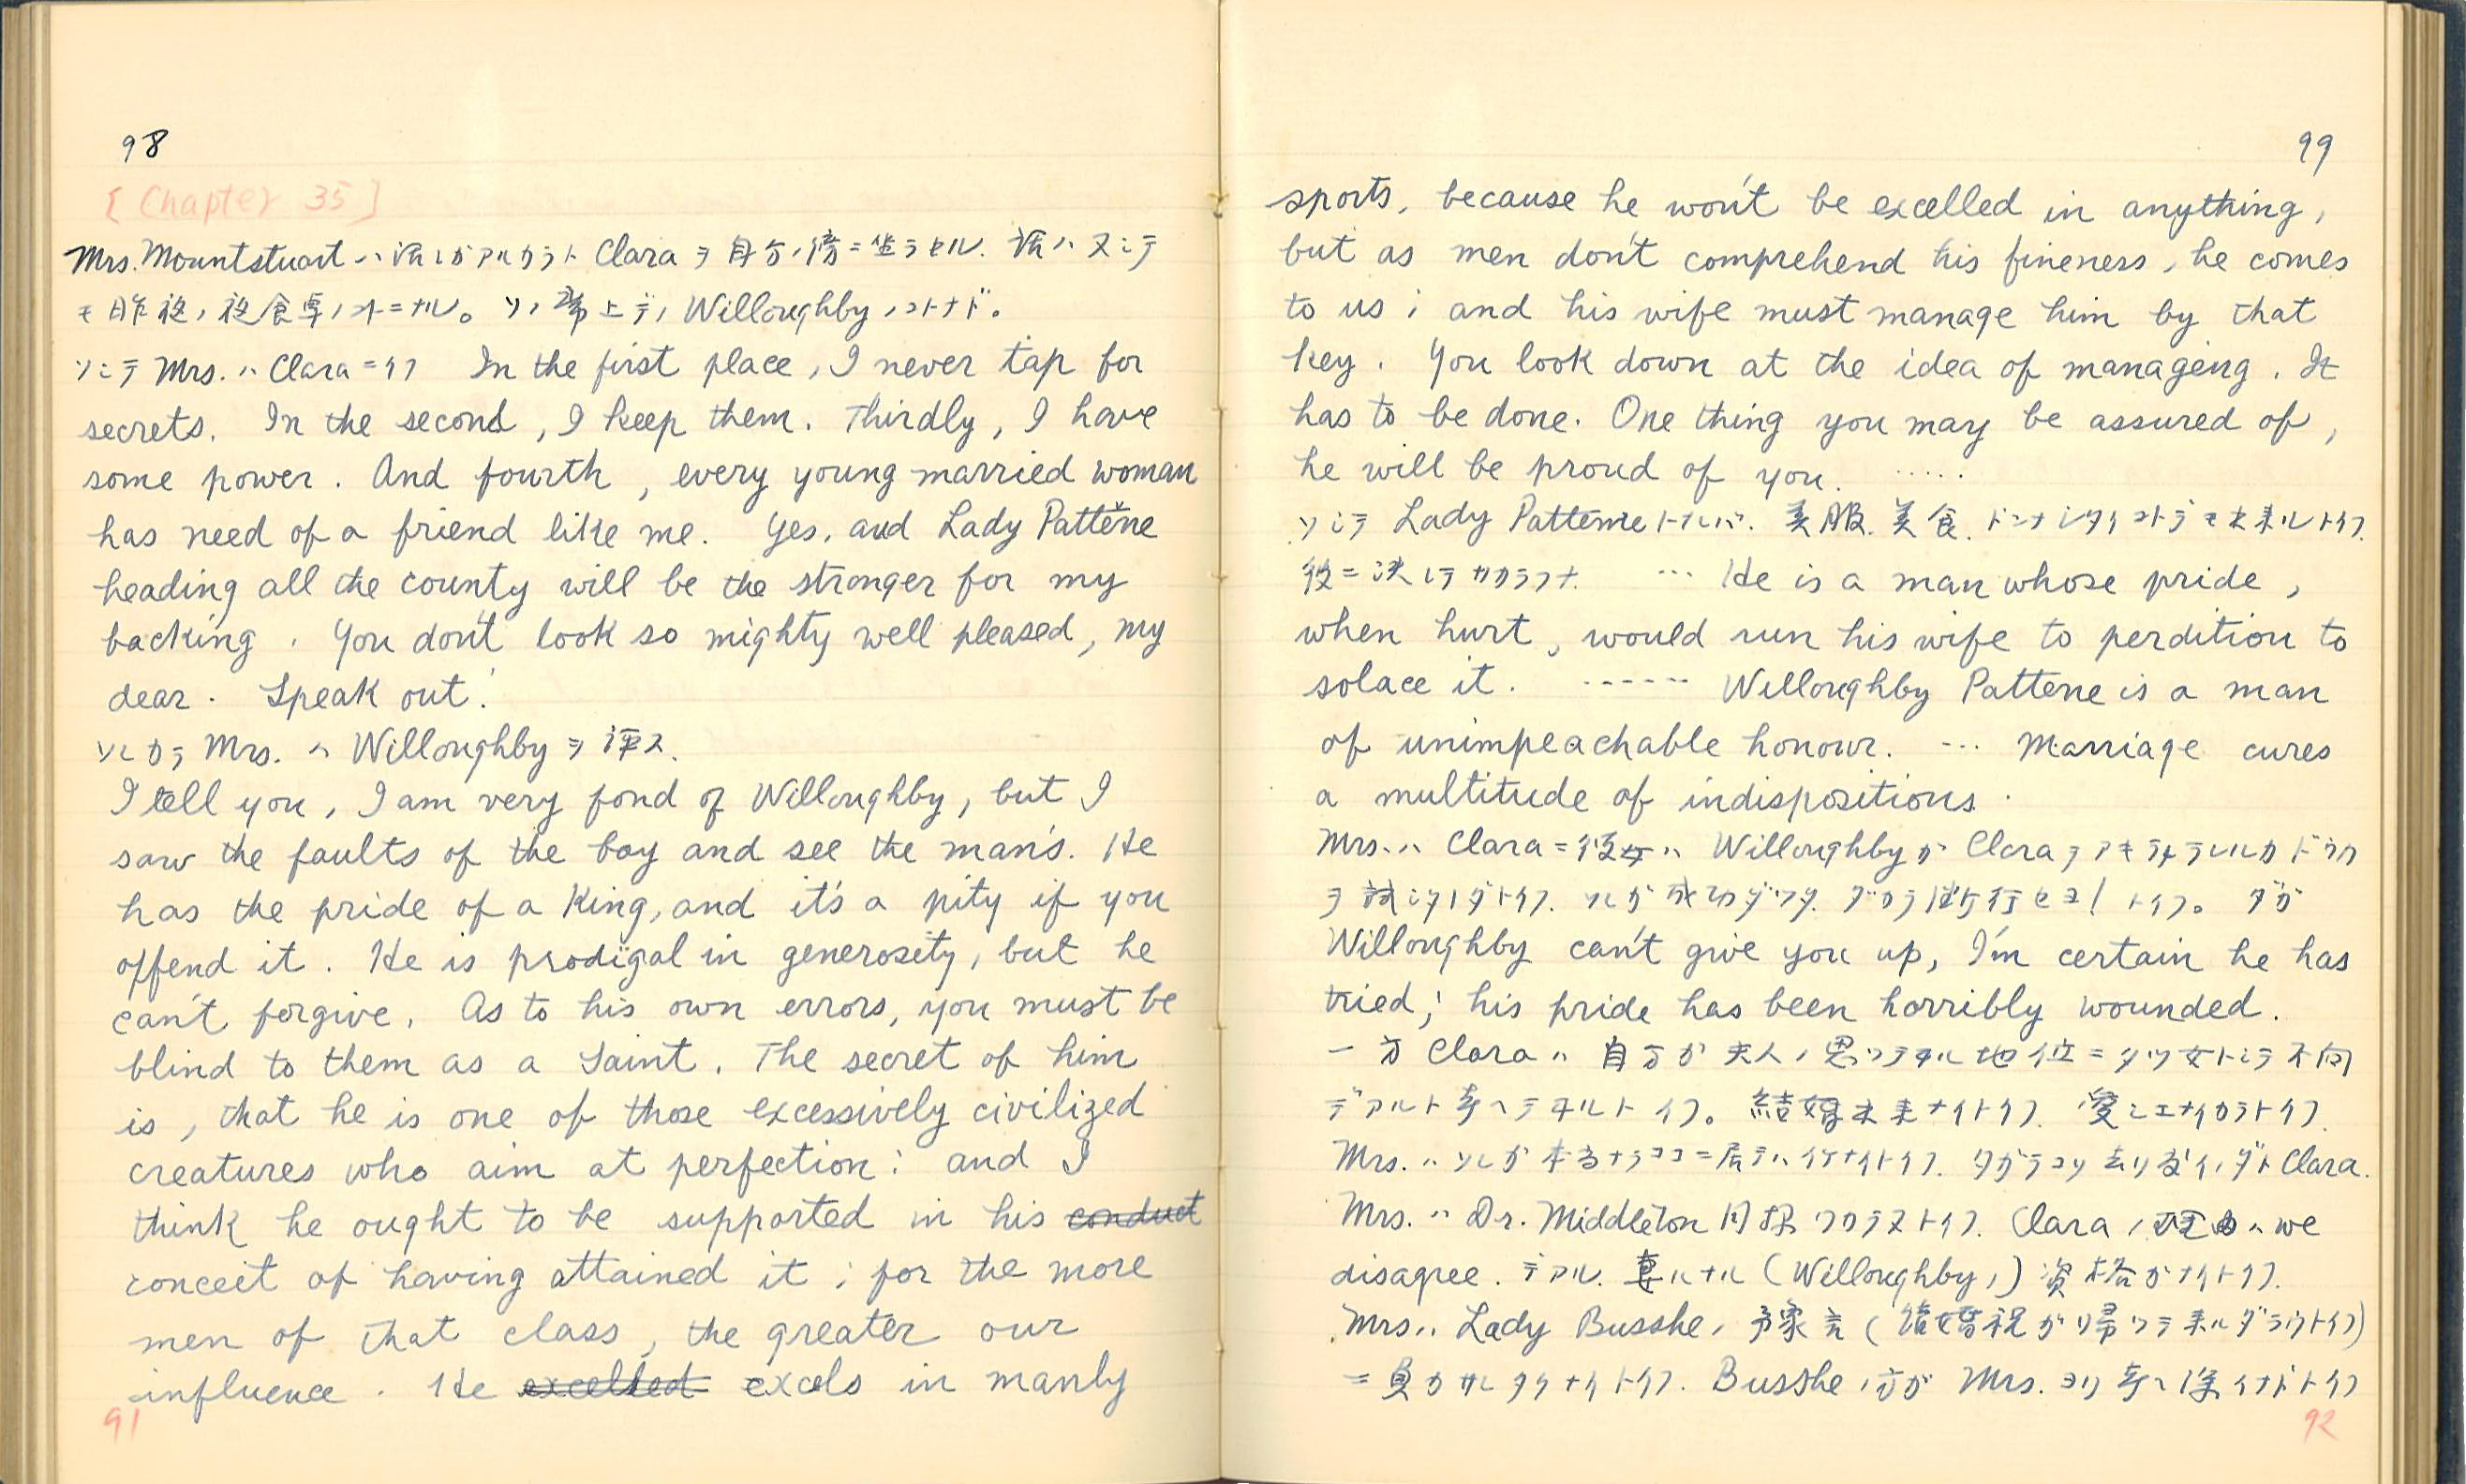 98
[Chapter 35]
Mrs. Mountstuart ハ話シガアルカラト Clara ヲ自分ノ傍ニ坐ラセル. 話ハヌシテ
モ昨夜ノ夜食卓ノコトニナル。ソノ席上デノ Willoughby ノコトナド。
ソシテ Mrs. ハ Clara ニイフ In the first place, I never tap for
secrets. In the second, I keep them. Thirdly, I have
some power. And fourth, every young married woman
has need of a friend like me. Yes, and Lady Patterne
heading all the county will be the stronger for my
backing. You don't look so mighty well pleased, my
dear. Speak out!
ソレカラ Mrs. ハ Willoughby ヲ評ス.
I tell you, I am very fond of Willoughby, but I
saw the faults of the boy and see the man's. He
has the pride of a King, and it's a pity if you
offend it. He is prodigal in generosity, but he
can't forgive. As to his own errors, you must be
blind to them as a Saint. The secret of him
is, that he is one of those excessively civilized
creatures who aim at perfection: and I
think he ought to be supported in his conduct
conceit of having attained it; for the more
men of that class, the greater our
influence. He excelled excels in manly
91
99
sports, because he won't be excelled in anything,
but as men don't comprehend his fineness, he comes
to us; and his wife must manage him by that
key. You look down at the idea of manageing. It
has to be done. One thing you may be assured of,
he will be proud of you. .....
ソシテ Lady Patterne トナレバ. 美服. 美食. ドンナシタイコトデモ出来ルトイフ.
彼ニ決シテサカラフナ. ... He is a man whose pride,
when hurt, would run his wife to perdition to
solace it. ------ Willoughby Pattene is a man
of unimpeachable honour. ... Marriage cures
a multitude of indispositions.
Mrs. ハ Clara ニ彼女ハ Willoughby ガ Clara ヲアキラメラレルカドウカ
ヲ試シタノダトイフ. ソレガ成功ダッタ. ダカラ断行セヨ! トイフ。 ダガ
Willoughby can't give you up, I'm certain he has
tried; his pride has been horribly wounded.
一方 Clara ハ自分ガ夫人ノ思ッテヰル地位ニタツ女トシテ不向
デアルト考ヘテヰルトイフ。結婚出来ナイトイフ. 愛シエナイカラトイフ.
Mrs. ハソレガ本当ナラココニ居テハイケナイトイフ. ダカラコソ去リタイノダト Clara.
Mrs. ハ Dr. Middleton 同様ワカラヌトイフ. Clara ノ理由ハ we
disagree. デアル. 妻ルナル (Willoughby ノ) 資格ガナイトイフ.
Mrs. ハ Lady Busshe ノ予言 (結婚祝ガ帰ッテ来ルダラウトイフ)
ニ負カサレタクナイトイフ. Busshe ノ方ガ Mrs. ヨリ考ヘ深イナドトイフ
92